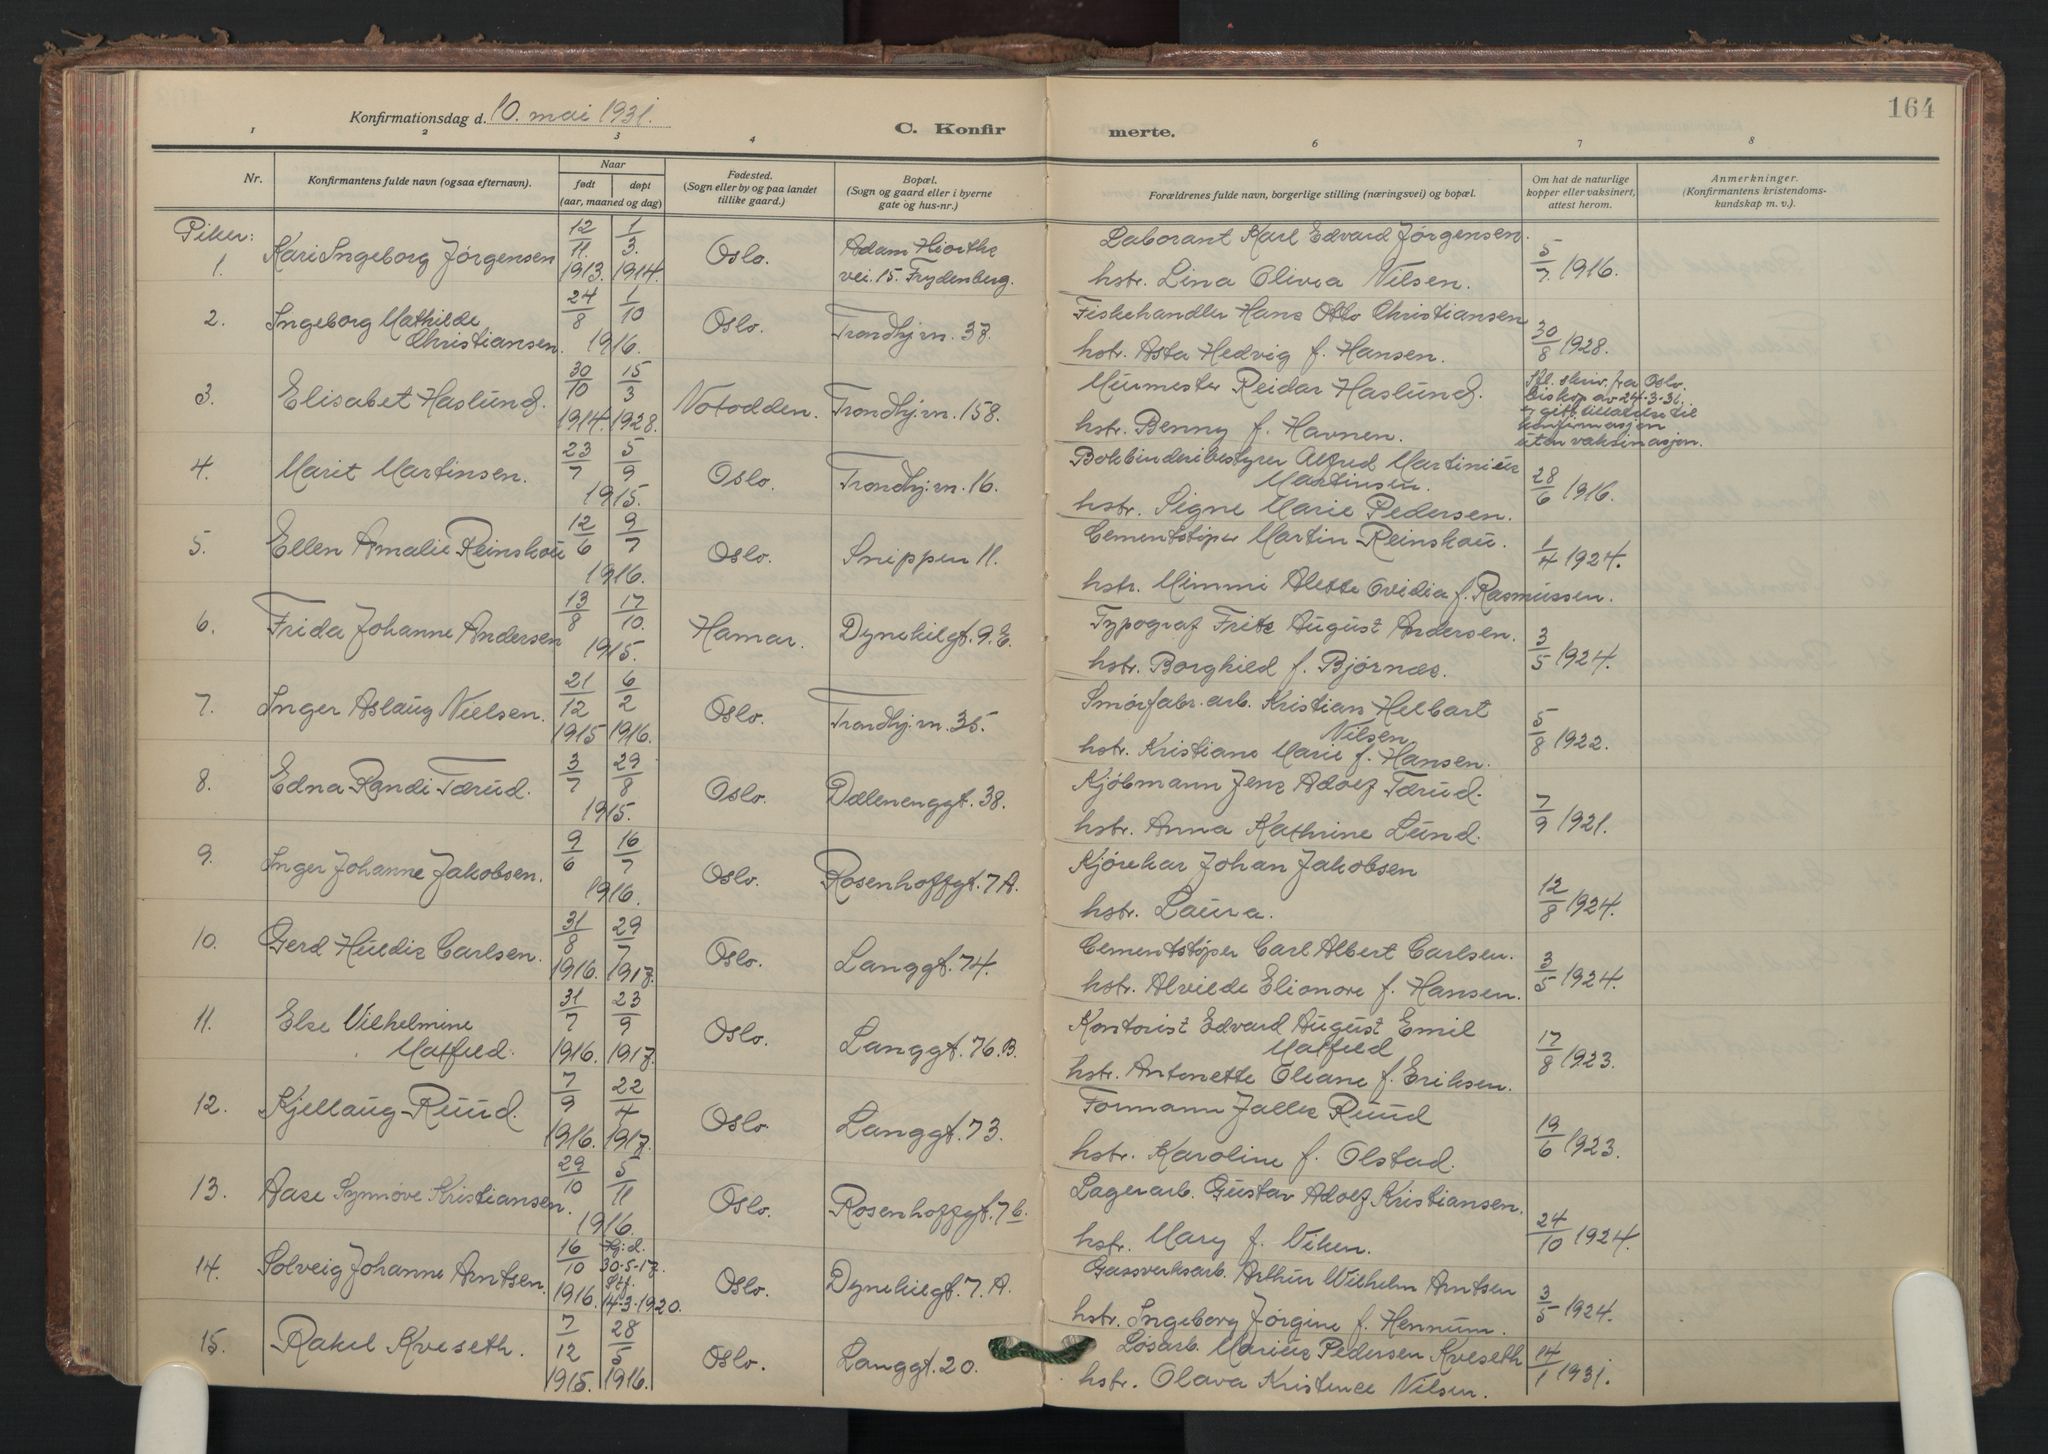 164
Konfirmationsdag d. 10. mai 1931.
C. Konfirmerte.
1 2 3 4 6 7 8
Nr.
Konfirmantens fulde navn (ogsaa efternavn).
Naar
født
døpt
(aar, maaned og dag)
Fødested.
(Sogn eller by og paa landet
tillike gaard.)
Bopæl.
(Sogn og gaard eller i byerne
gate og hus-nr.)
Forældrenes fulde navn, borgerlige stilling (næringsvei) og bopæl.
Om hat de naturlige
kopper eller vaksinert,
attest herom.
Anmerkninger.
(Konfirmantens kristendoms-
kundskap m. v.).
Piker:
1. Kari Ingeborg Jørgensen 12/11 1913. 1/3. 1914. Oslo. Adam Hjorths
vei. 15. Frydenberg.
Laborant Karl Edvard Jørgensen.
hstr. Lina Olivia Nilsen. 5/7 1916.
2. Ingeborg Mathilde
Christiansen. 24/8 1/10 1916. Oslo. Trondhj.vn. 37.
Fiskehandler Hans Otto Christiansen
hstr. Asta Hedvig f. Hansen. 30/8 1928.
3. Elisabet Haslund. 30/10 1914. 15/3 1928. Notodden. Trondhj.vn. 158.
Murmester Reidar Haslund.
hstr. Benny f. Havnen.
skriv. fra Oslo.
biskop av 24-3-31.
er gitt tillatelse til
konfirmasjon
uten vaksinasjon.
4. Marit Martinsen. 23/7 5/9 1915. Oslo. Trondhj.vn. 16.
Bokbinderibestyrer Alfred Martinius
Martinsen.
hstr. Signe Marie Pedersen. 28/6 1916.
5. Ellen Amalie Reinskou 12/6 9/7 1916. Oslo. Snippen 11.
Cementstøper Martin Reinskau.
hstr. Mimmi Alette Ovidia f. Rasmussen. 1/4 1924.
6. Frida Johanne Andersen 13/8 17/10. 1915. Hamar. Dynekilgt. 9. E.
Typograf Fritz August Andersen.
hstr. Borghild f. Bjørnæs. 3/5 1924.
7. Inger Aslaug Nielsen. 21/12 1915 6/2 1916. Oslo. Trondhj.vn. 35.
Smørfabr.arb. Kristian Helbart
Nilsen
hstr. Kristiane Marie f. Hansen. 5/8 1922.
8. Edna Randi Tærud. 3/7 29/8 1915. Oslo. Dælenenggt. 38.
Kjøbmann Jens Adolf Tærud.
hstr. Anna Kathrine Lund. 7/9 1921.
9. Inger Johanne Jakobsen. 9/6 16/7 1916. Oslo. Rosenhoffgt. 7 A.
Kjørekar Johan Jakobsen
hstr. Laura. 12/8 1924.
10. Gerd Huldis Carlsen. 31/8 1916. 29/7 1917. Oslo. Langgt. 74.
Cementstøper Carl Albert Carlsen.
hstr. Alvilde Elionore f. Hansen. 3/5 1924.
11. Else Vilhelmine
Matfeld. 31/7 1916. 23/9 1917. Oslo. Langgt. 76. B.
Kontorist Edvard August Emil
Matfeld
hstr. Antonette Oliane f. Eriksen. 17/8 1923.
12. Kjellaug Ruud. 7/9 1916. 22/4 1917. Oslo. Langgt. 73.
Formann Jalles Ruud
hstr. Karoline f. Olstad. 19/6 1923.
13. Aase Synnøve Kristiansen. 29/10 5/11 1916. Oslo. Rosenhoffgt. 7 b.
Lagerarb. Gustav Adolf Kristiansen.
hstr. Mary f. Viken. 24/10 1924.
14. Solveig Johanne Arntsen. 16/10 1916. Hj.d. 30-5-17. Stf. 14-3-1920. Oslo. Dynekilgt. 7. A.
Gassverksarb. Arthur Wilhelm Arntsen
hstr. Ingeborg Jørgine f. Hennum. 3/5 1924.
15. Rakel Kveseth. 7/12 1915. 28/5 1916. Oslo. Langgt. 20.
Løsarb. Marius Pedersen Kveseth
hstr. Olava Kristence Nilsen. 14/1 1931.